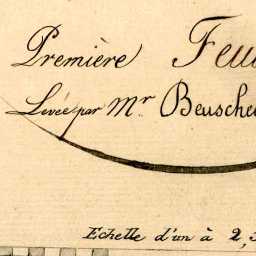 Première Feui
Levée par Mr Beusche
Echelle d'un à 2,5